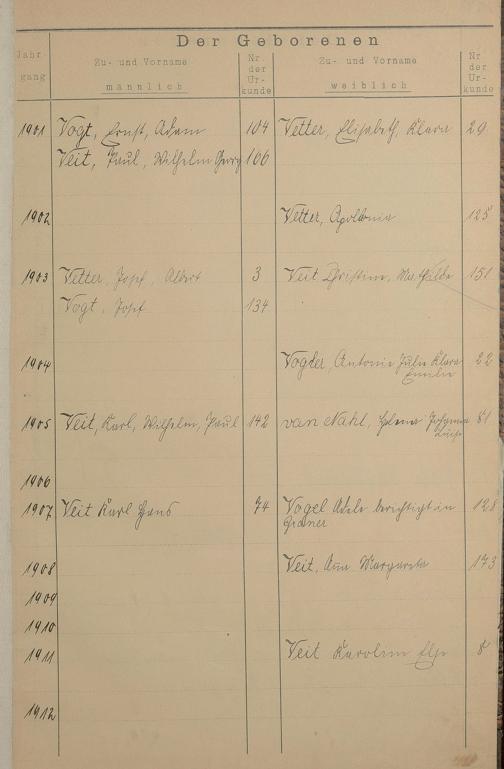 Der Geborenen
Jahrgang Zu- und Vorname männlich Nr. der Urkunde Zu- und Vorname weiblich Nr der Urkunde
1901 Vogt, Ernst, Adam 104 Vetter, Elisabeth, Klara 29
Veit, Paul, Wilhelm Georg 166
1902 Vetter, Apollonia 125
1903 Vetter, Josef, Albert 3 Veit Christine, Mathilde 151
Vogt, Josef 134
1904 Vogler, Antonie Julie Klara 22
Emilie
1905 Veit, Karl, Wilhelm, Paul 142 van Nahl, Helena Johanna 81
Luise
1906
1907 Veit Karl Hans 74 Vogel Adele berichtigt in 128
1908 Veit, Anna Margareta 173
1909
1910
1911 Veit Karoline Else 8
1912